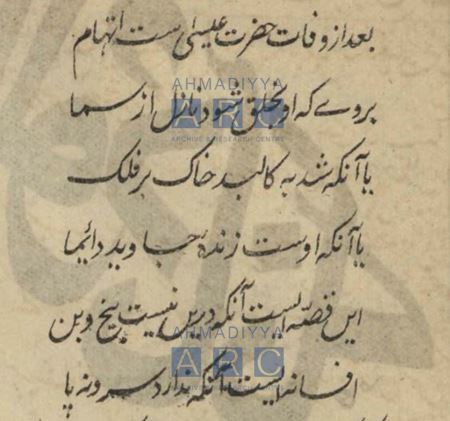 بعد از وفات حضرت عیسیٰ ست اتہام
بروے کہ او بخلق شود نازل از سما
یا آنکہ شد بہ کالبد خاک بر فلک
یا آنکہ اوست زندۂ جاوید دائما
ایں قصّہ ایست آنکہ دریں نیست بیخ و بن
افسانہ ایست آنکہ ندارد سر و نہ پا
AHMADIYYA
ARC
ARCHIVE & RESEARCH CENTRE
AHMADIYYA
ARC